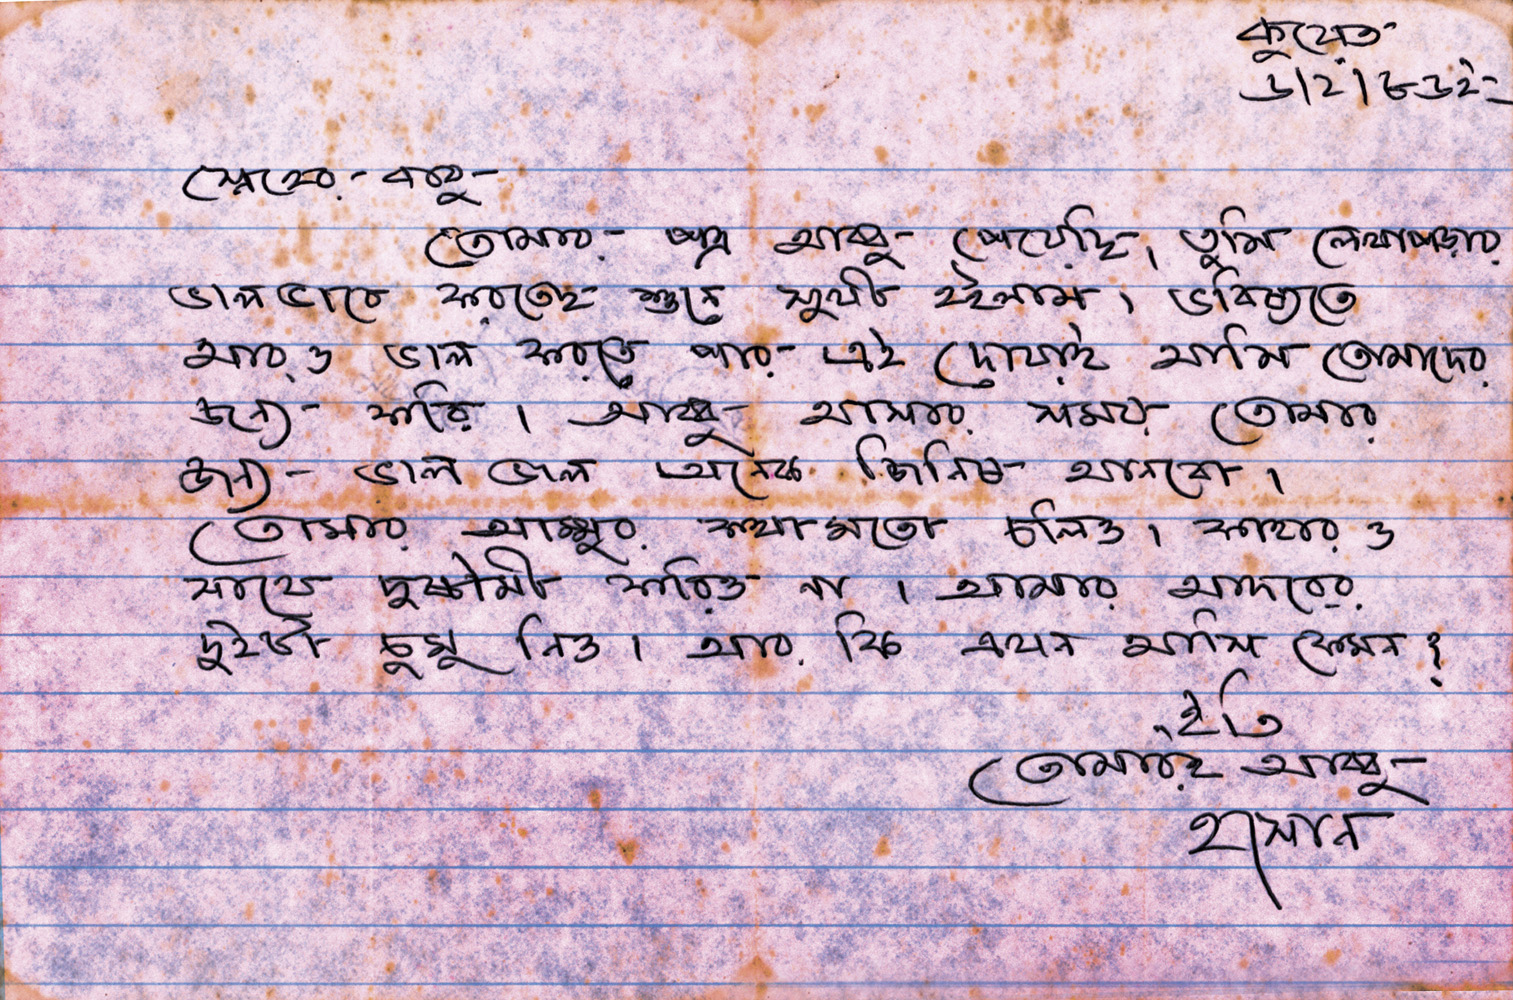 কুয়েত
৬/২/৮৬ইং
স্নেহের - বাবু -
তোমার - পত্র আব্বু - পেয়েছি, তুমি লেখাপড়ার
ভাল ভাবে করতেছ শুনে সুখী হইলাম। ভবিষ্যতে
আরও ভাল করতে পার - এই দোয়াই আমি তোমাদের
জন্য - করি। আব্বু - আসার সময় তোমার
জন্য - ভাল ভাল অনেক জিনিষ আনবো।
তোমার আম্মুর কথা মতো চলিও। কাহার ও
সাথে দুষ্টামী করিও না। আমার আদরের
দুইটা চুমু নিও। আর কি এখন আসি কেমন?
ইতি
তোমারই আব্বু -
হাসান